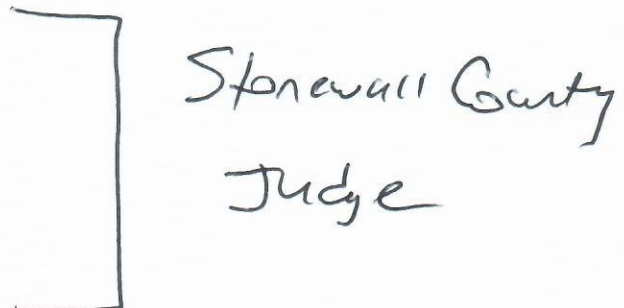 Stonewall County
Judge